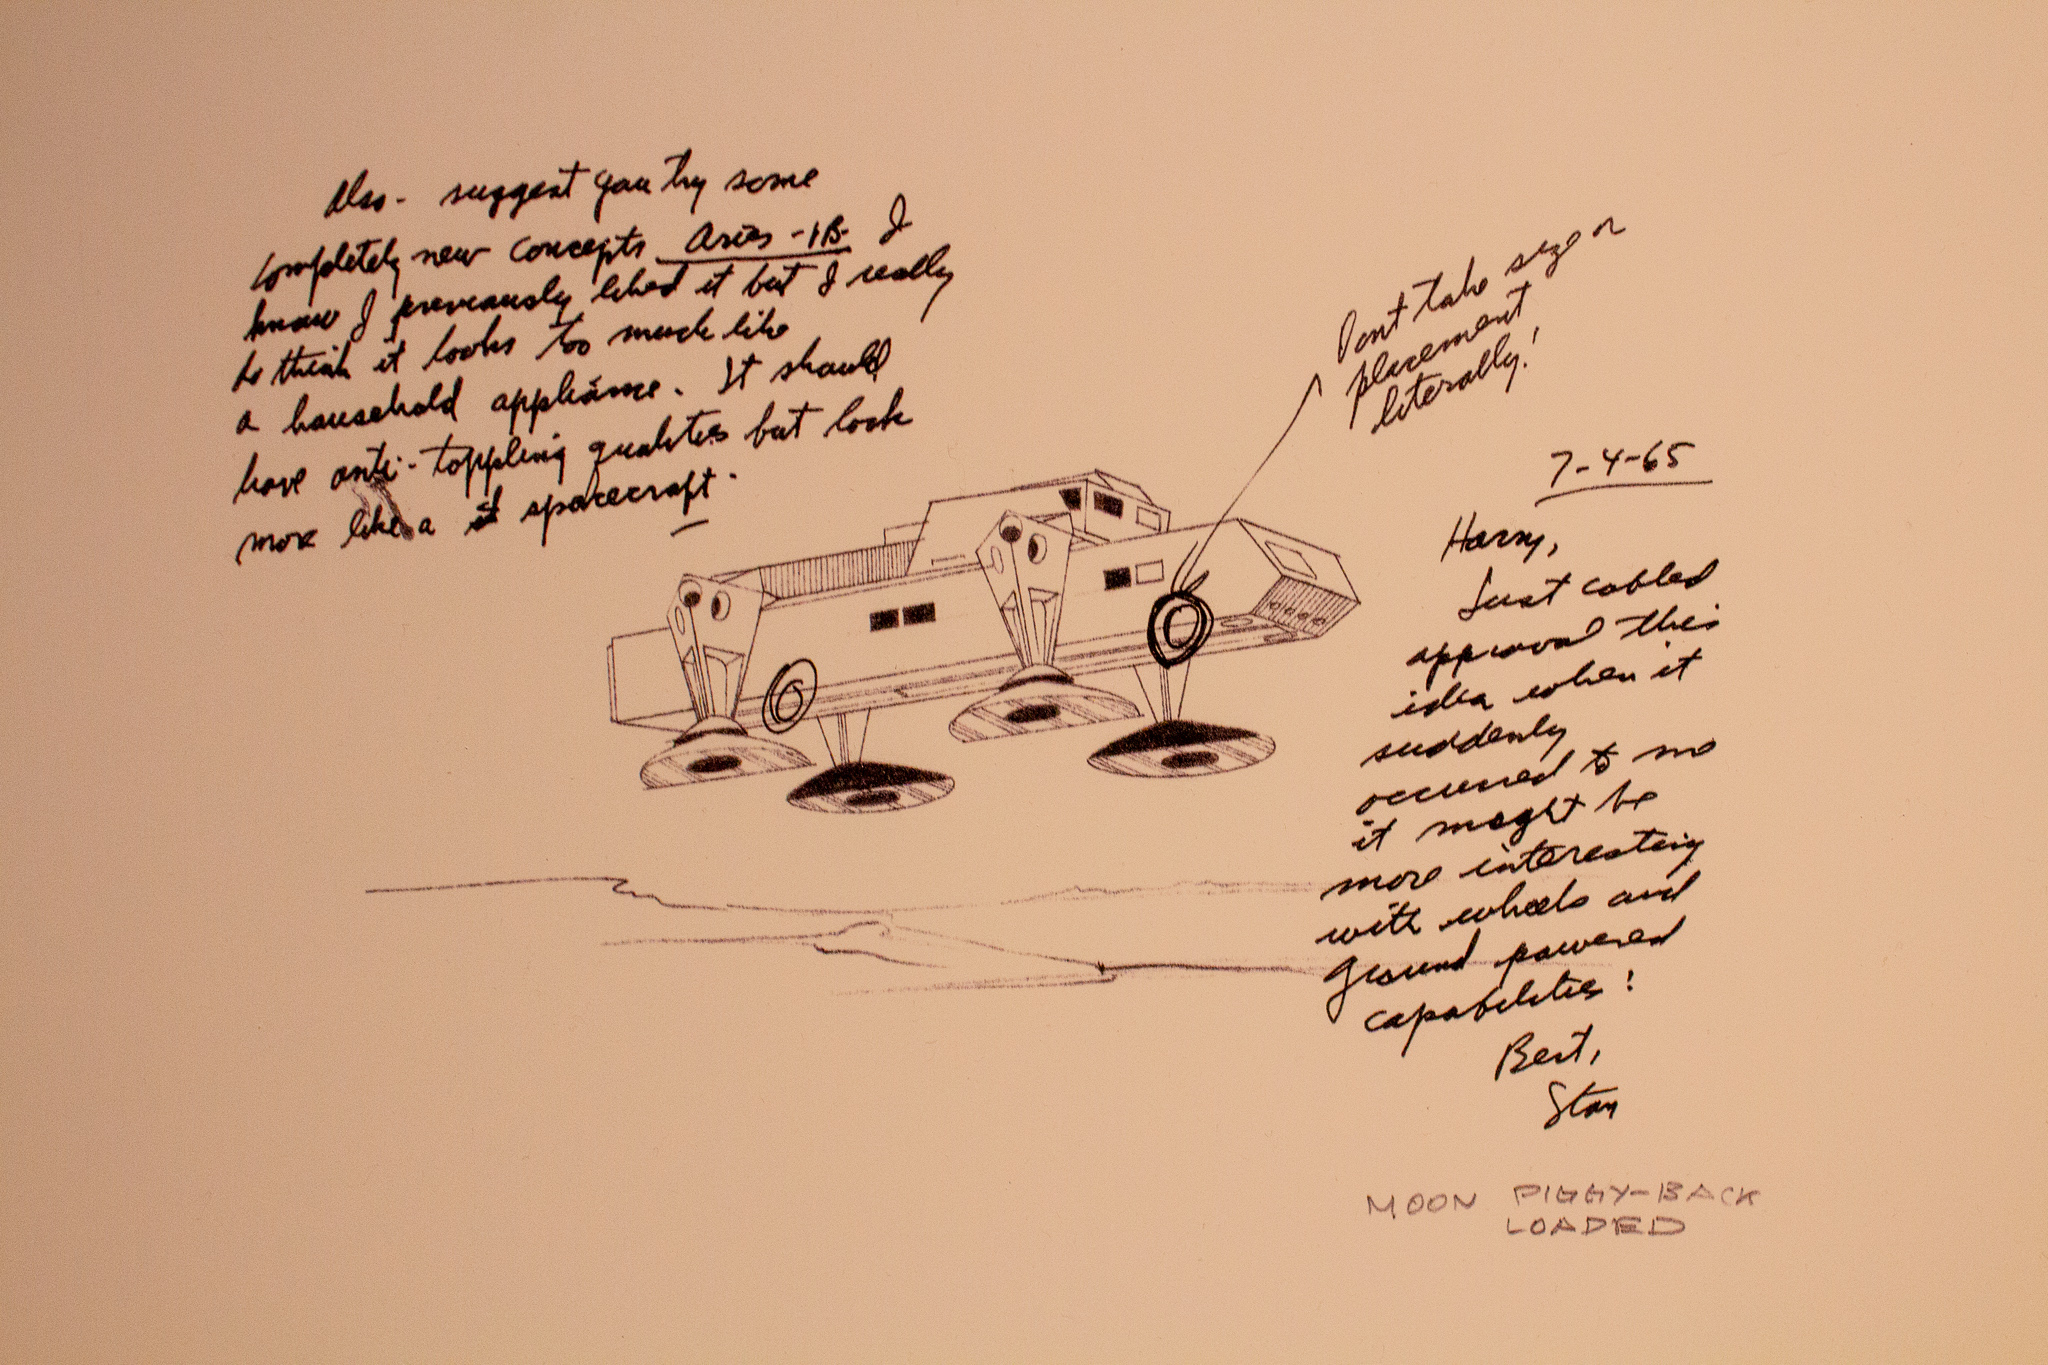 Also - suggest you try some
completely new concepts Aries-1B- I
know I previously liked it but I really
do think it looks too much like
a household appliance. It should
have anti-toppling qualities but look
more like a spacecraft.
Dont take size or
placement
literally!
7-4-65
Harry,
Just cabled
approval this
idea when it
suddenly
occurred to me
it might be
more interesting
with wheels and
ground powered
capabilities!
Best,
Stan
MOON PIGGY-BACK
LOADED